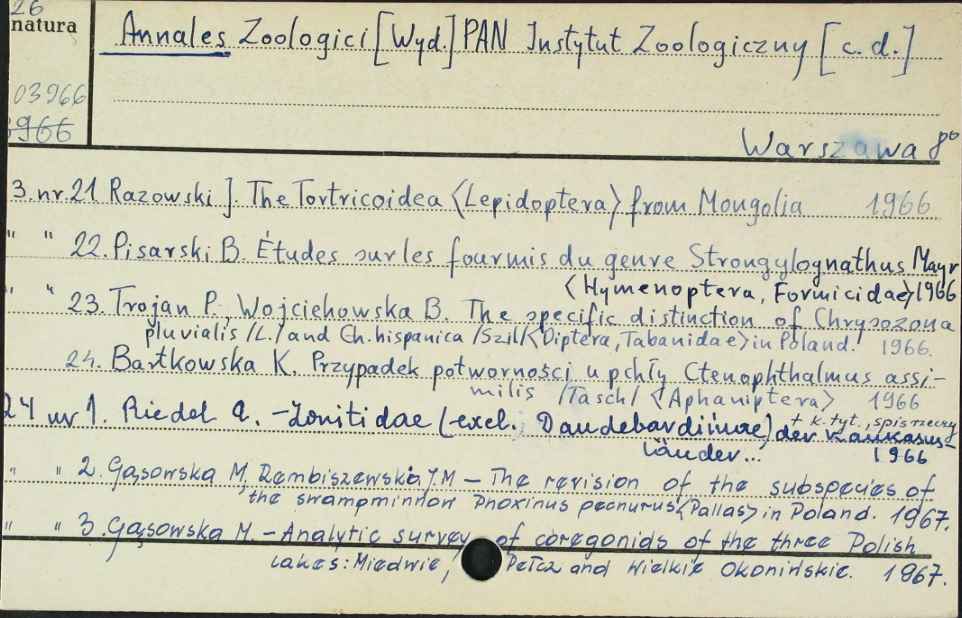 26
natura
Annales Zoologici [Wyd.] PAN Instytut Zoologiczny [c.d.]
03966
3966
Warszawa 8°
3. nr. 21 Razowski J. The Tortricoidea <Lepidoptera> from Mongolia 1966
" " 22. Pisarski B. Études sur les fourmis du genre Strongylognathus Mayr
<Hymenoptera, Formicidae> 1966
" " 23. Trojan P., Wojciehowska B. The specific distinction of Chrysozona
pluvialis /L./ and Ch. hispanica /Szil/ <Diptera, Tabanidae> in Poland. 1966.
24. Bartkowska K. Przypadek potworności u pchły Ctenophthalmus assi-
milis /Tasch/ <Aphaniptera> 1966
24 nr 1. Riedel A. - Zonitidae (excl. Daudebardiinae) der Kaukasus-
+ k. tyt., spis rzeczy
länder... 1966
" " 2. Gąsowska M., Rembiszewski J.M - The revision of the subspecies of
the swampminnow Phoxinus pecnurus <Pallas> in Poland. 1967.
" " 3. Gąsowska M. - Analytic survey of coregonids of the three Polish
Lakes: Miedwie, Pełcz and Wielkie Okonińskie. 1967.